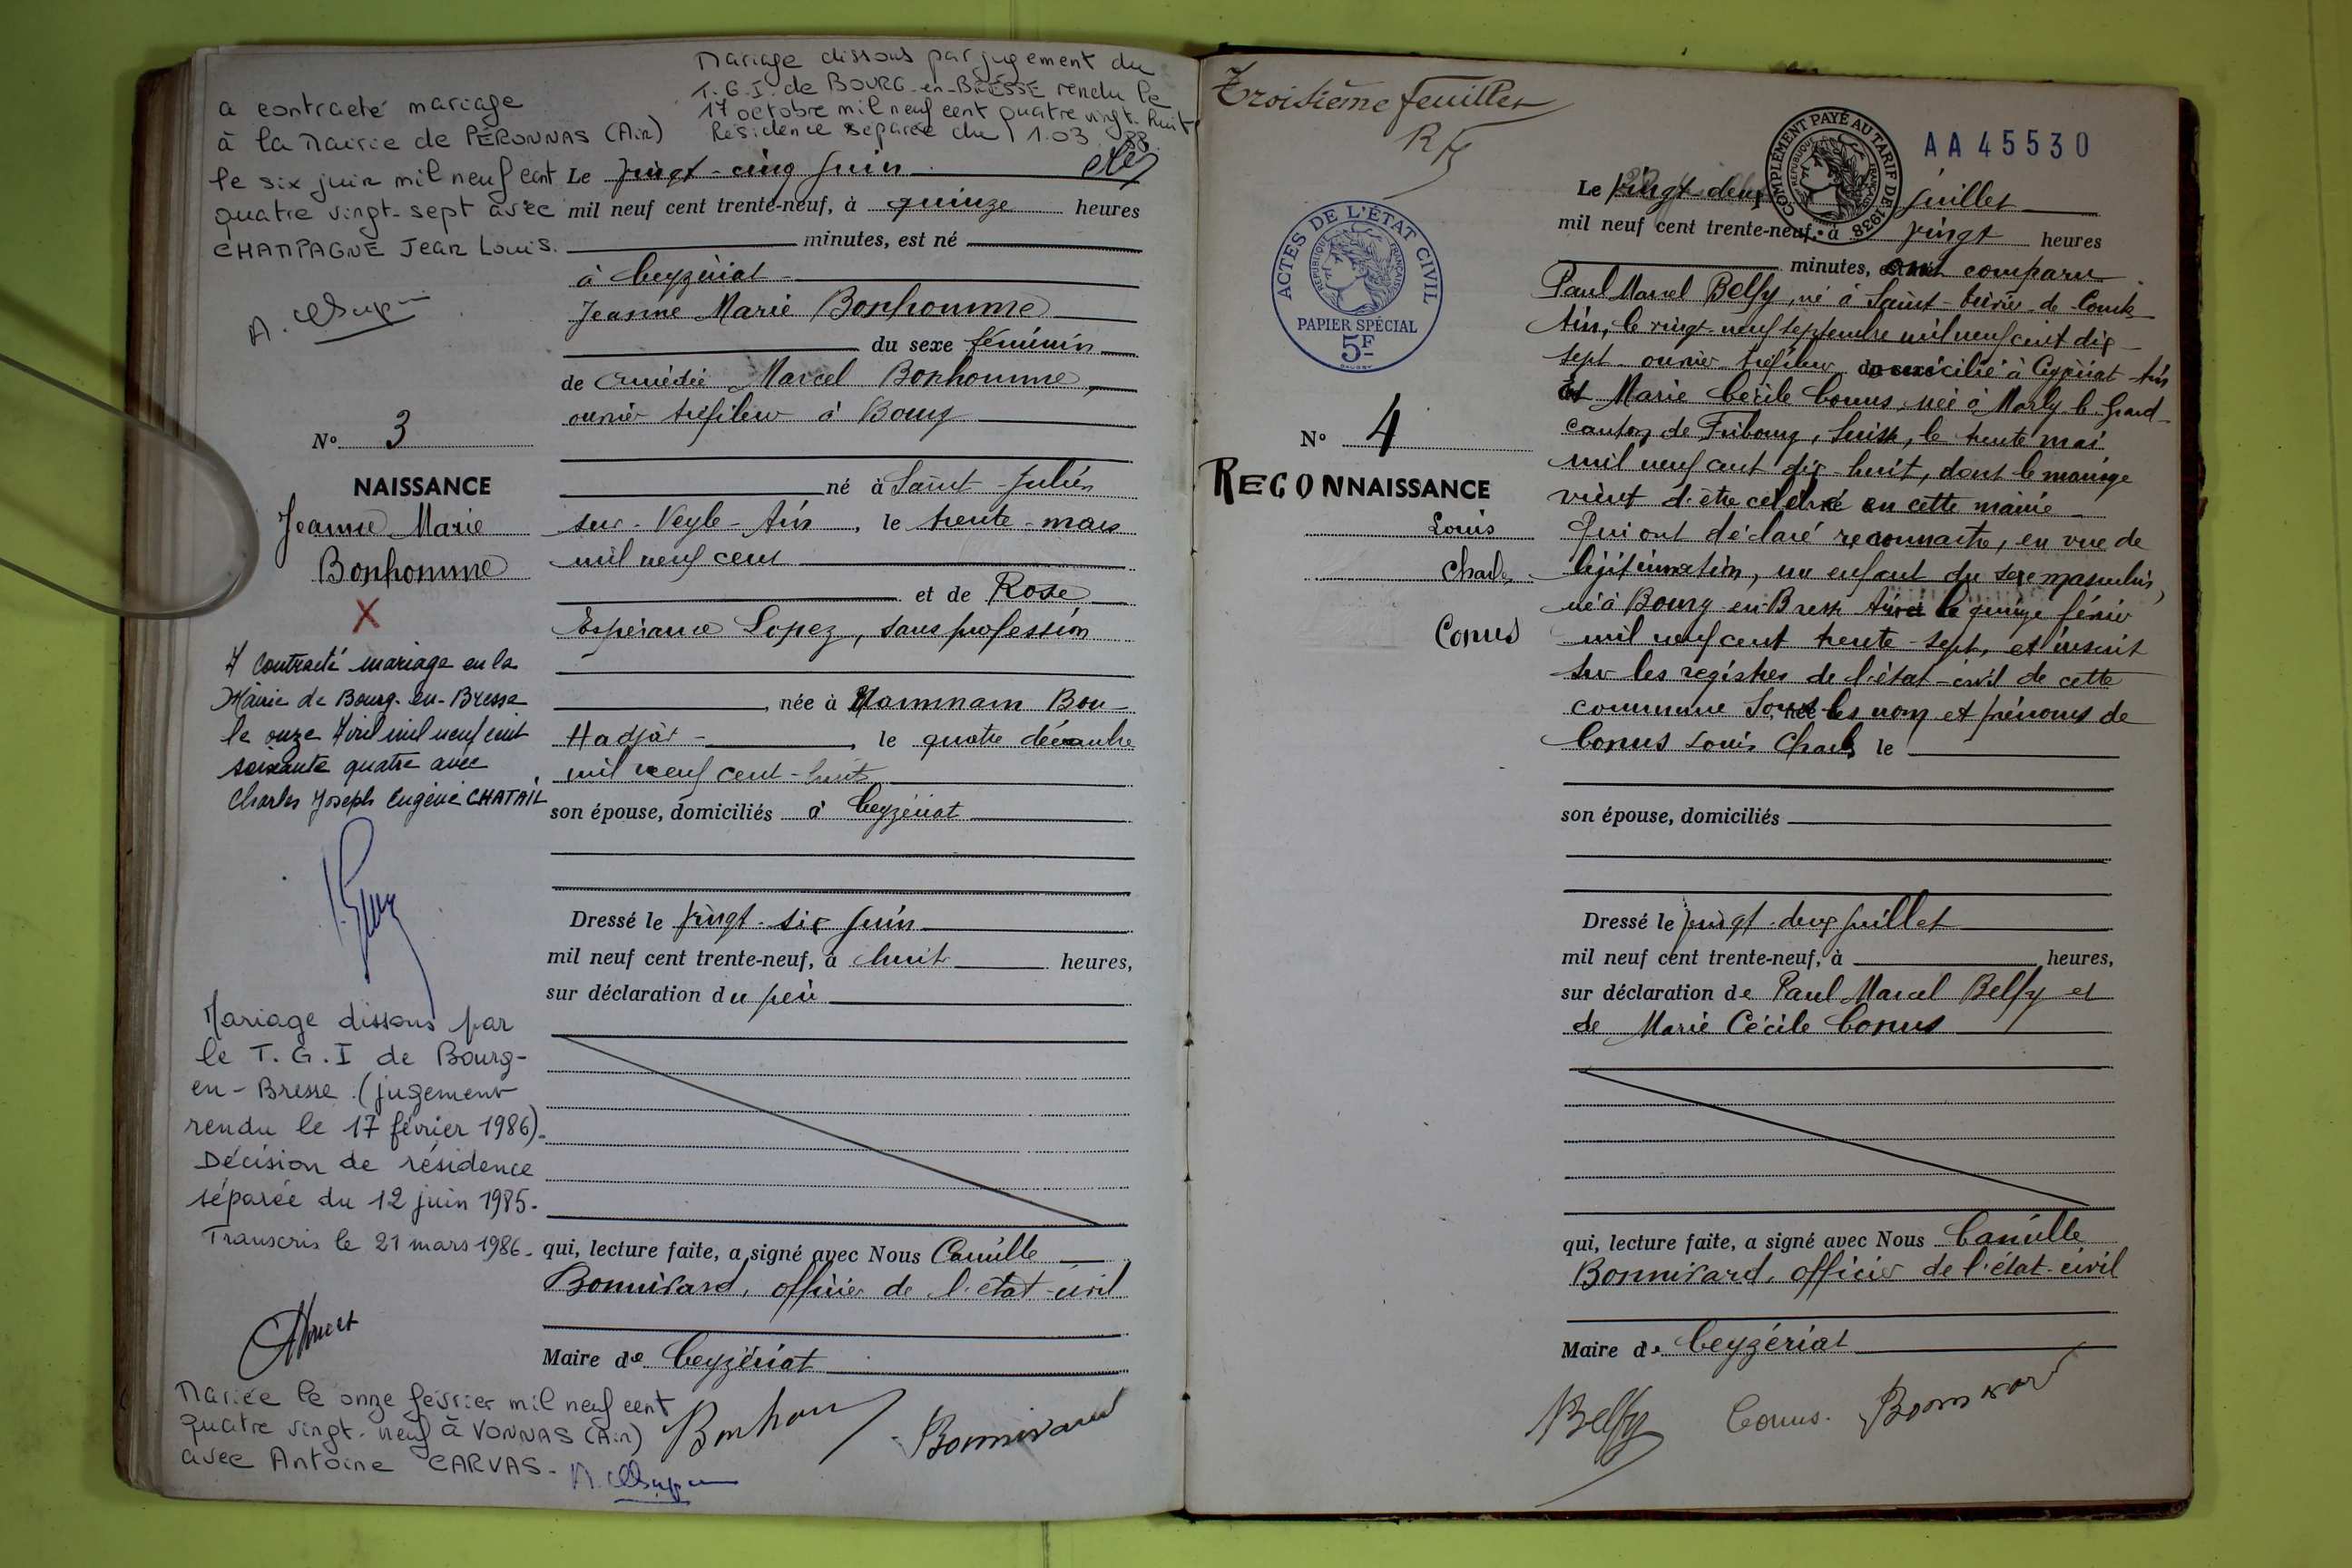 Mariage dissous par jugement du
T.G.I. de BOURG-en-BRESSE rendu le
17 octobre mil neuf cent quatre vingt-huit
Résidence séparée du 1.03.88.
a contracté mariage
à la Mairie de PÉRONNAS (Ain)
le six juin mil neuf cent
quatre vingt-sept avec
CHAMPAGNE Jean Louis.
N° 3
NAISSANCE
Jeanne Marie
Bonhomme
X
A contracté mariage en la
Mairie de Bourg-en-Bresse
le onze Avril mil neuf cent
soixante quatre avec
Charles Joseph Eugène CHATAIL
Mariage dissous par
le T.G.I de Bourg-
en-Bresse (jugement
rendu le 17 février 1986).
Décision de résidence
séparée du 12 juin 1985.
Transcris le 21 mars 1986.
Mariée le onze février mil neuf cent
quatre vingt-neuf à VONNAS (Ain)
avec Antoine CARVAS.
Le vingt-cinq juin
mil neuf cent trente-neuf, à quinze heures
minutes, est né
à Ceyzériat
Jeanne Marie Bonhomme
du sexe féminin
de Amédée Marcel Bonhomme,
ouvrier tréfileur à Bourg
né à Saint-Julien
sur-Veyle-Ain, le trente-mars
mil neuf cent
et de Rose
Espérance Lopez, sans profession
, née à Hammam Bou-
Hadjar-, le quatre décembre
mil neuf cent-huit
son épouse, domiciliés à Ceyzériat
Dressé le vingt-six juin
mil neuf cent trente-neuf, à huit heures,
sur déclaration du père
qui, lecture faite, a signé avec Nous Camille
Bonnivard, officier de l'état-civil
Maire de Ceyzériat
Bonhom
Bonnivard
Troisième feuillet
AA 45530
COMPLÉMENT PAYÉ AU TARIF DE 1938
RÉPUBLIQUE FRANÇAISE
ACTES DE L'ÉTAT CIVIL
RÉPUBLIQUE FRANÇAISE
PAPIER SPÉCIAL
5F
N° 4
RECONNAISSANCE
Louis
Charles
Conus
Le vingt-deux juillet
mil neuf cent trente-neuf, à vingt heures
minutes, ont comparu
Paul Marcel Belfy, né à Saint-Trivier-de-Courtes
Ain, le vingt-neuf septembre mil neuf cent dix-
sept ouvrier tréfileur domicilié à Ceyzériat Ain
Et Marie Cécile Conus, née à Marly-le-Grand-
canton de Fribourg, Suisse, le trente mai
mil neuf cent dix-huit, dont le mariage
vient d'être célébré en cette mairie
Qui ont déclaré reconnaître, en vue de
légitimation, un enfant du sexe masculin,
né à Bourg en Bresse Ain le quinze février
mil neuf cent trente-sept, et inscrit
sur les registres de l'état-civil de cette
commune sous les nom et prénoms de
Conus Louis Charles le
son épouse, domiciliés
Dressé le vingt-deux juillet
mil neuf cent trente-neuf, à heures,
sur déclaration de Paul Marcel Belfy et
de Marie Cécile Conus
qui, lecture faite, a signé avec Nous Camille
Bonnivard, officier de l'état-civil
Maire de Ceyzériat
Belfy Conus. Bonnivard